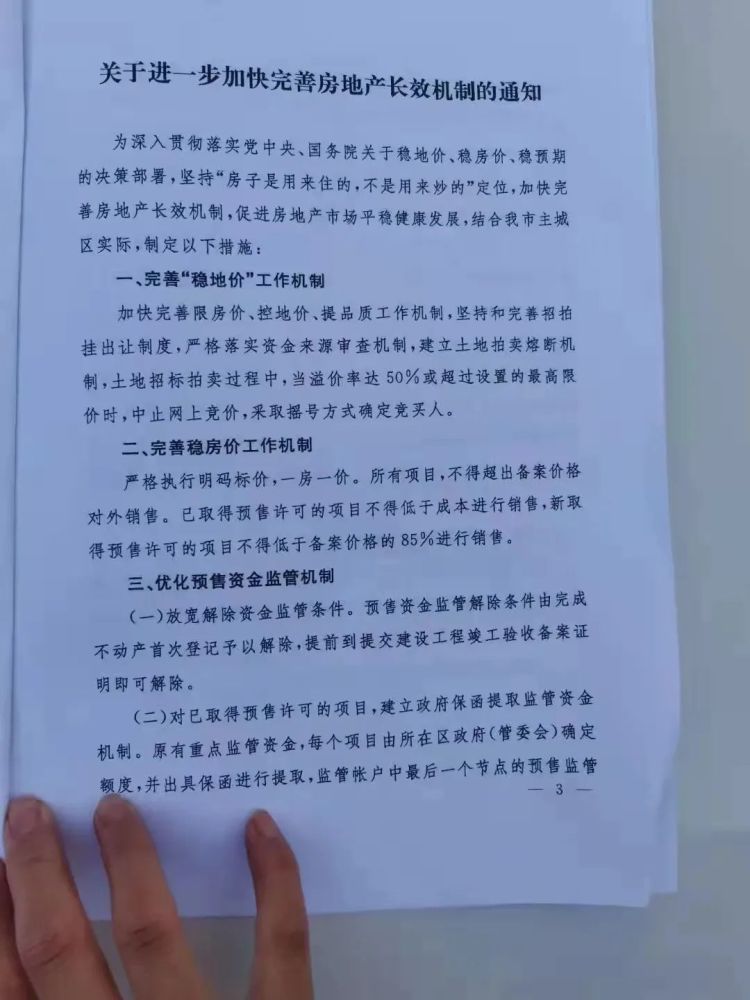 关于进一步加快完善房地产长效机制的通知
为深入贯彻落实党中央、国务院关于稳地价、稳房价、稳预期
的决策部署,坚持“房子是用来住的,不是用来炒的”定位,加快完
善房地产长效机制,促进房地产市场平稳健康发展,结合我市主城
区实际,制定以下措施:
一、完善“稳地价”工作机制
加快完善限房价、控地价、提品质工作机制,坚持和完善招拍
挂出让制度,严格落实资金来源审查机制,建立土地拍卖熔断机
制,土地招标拍卖过程中,当溢价率达50%或超过设置的最高限
价时,中止网上竞价,采取摇号方式确定竞买人。
二、完善稳房价工作机制
严格执行明码标价,一房一价。所有项目,不得超出备案价格
对外销售。已取得预售许可的项目不得低于成本进行销售,新取
得预售许可的项目不得低于备案价格的85%进行销售。
三、优化预售资金监管机制
(一)放宽解除资金监管条件。预售资金监管解除条件由完成
不动产首次登记予以解除,提前到提交建设工程竣工验收备案证
明即可解除。
(二)对已取得预售许可的项目,建立政府保函提取监管资金
机制。原有重点监管资金,每个项目由所在区政府(管委会)确定
额度,并出具保函进行提取,监管帐户中最后一个节点的预售监管
— 3 —